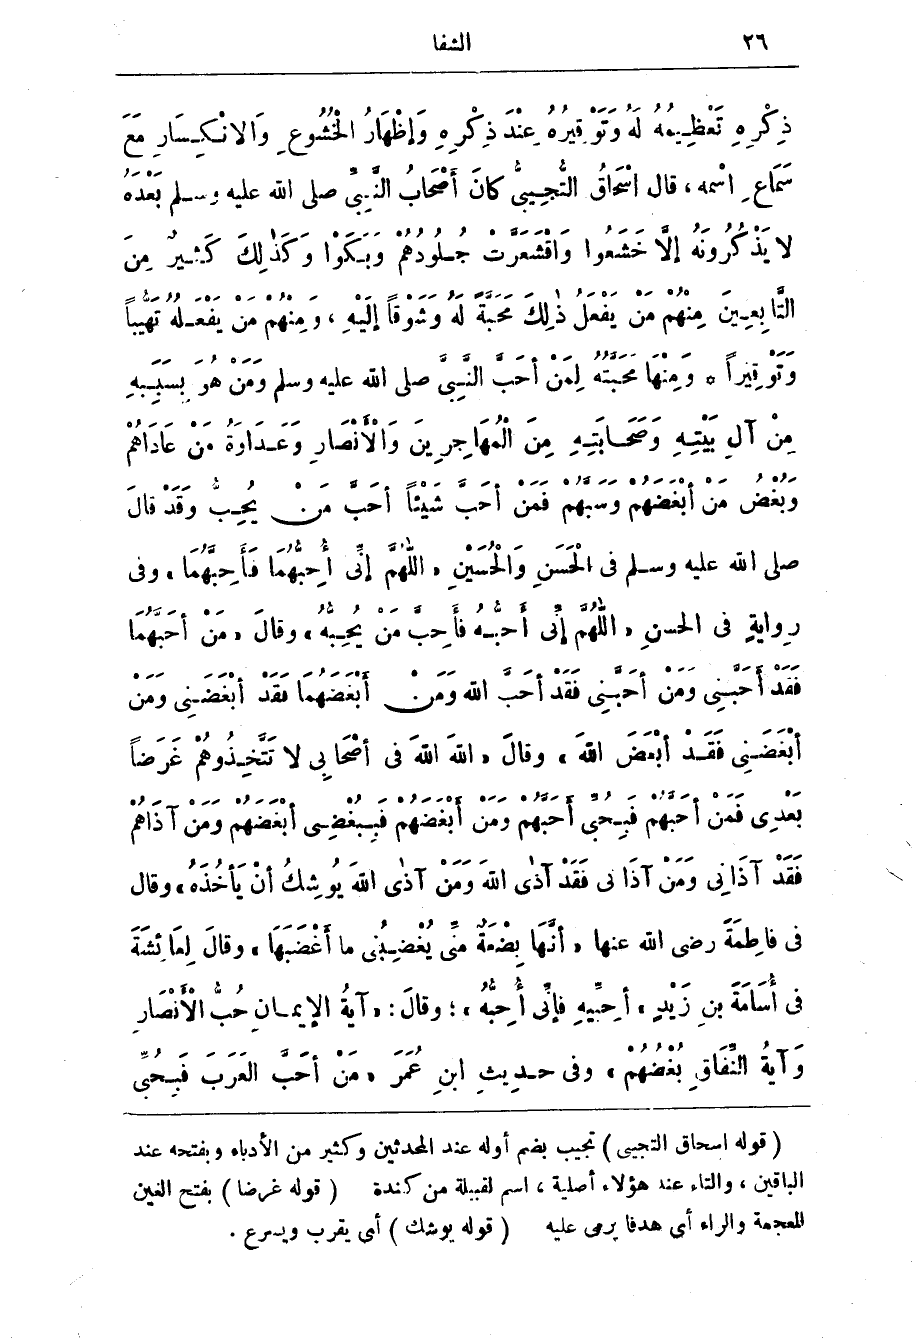 ٢٦ الشفا
ذِكْرِهِ تَعْظِيمُهُ لَهُ وَتَوْقِيرُهُ عِنْدَ ذِكْرِهِ وَإِظْهَارُ الْخُشُوعِ وَالانْكِسَارِ مَعَ
سَمَاعِ اسْمِهِ ، قال اسْحَاقُ التُّجِيبِيُّ كانَ أَصْحَابُ النَّبِيِّ صلى الله عليه وسلم بَعْدَهُ
لا يَذْكُرُونَهُ إلَّا خَشَعُوا وَاقْشَعَرَّتْ جُلُودُهُمْ وَبَكَوْا وَكَذٰلِكَ كَثِيرٌ مِنَ
التَّابِعِينَ مِنْهُمْ مَنْ يَفْعَلُ ذٰلِكَ مَحَبَّةً لَهُ وَشَوْقاً إلَيْهِ ، وَمِنْهُمْ مَن يَفْعَلُهُ تَهَيُّباً
وَتَوْقِيراً * وَمِنْهَا مَحَبَّتُهُ لِمَنْ أحَبَّ النَّبِيَّ صلى الله عليه وسلم وَمَنْ هُوَ بِسَبَبِهِ
مِنْ آلِ بَيْتِهِ وَصَحَابَتِهِ مِنَ الْمُهَاجِرِينَ وَالْأَنْصَارِ وَعَدَاوَةُ مَنْ عَادَاهُمْ
وَبُغْضُ مَنْ أَبْغَضَهُمْ وَسَبَّهُمْ فَمَنْ أحَبَّ شَيْئاً أحَبَّ مَنْ يُحِبُّ وَقَدْ قالَ
صلى الله عليه وسلم فى الْحَسَنِ وَالْحُسَيْنِ « اللّٰهُمَّ إنِّى أُحِبُّهُمَا فَأَحِبَّهُمَا » وفى
رِوايةٍ فى الحسنِ « اللّٰهُمَّ إنِّى أُحِبُّهُ فأَحِبَّ مَنْ يُحِبُّهُ » وقالَ « مَنْ أحَبَّهُمَا
فَقَدْ أَحَبَّنِى وَمَنْ أحَبَّنِى فَقَدْ أحَبَّ اللهَ وَمَنْ أَبْغَضَهُمَا فَقَدْ أَبْغَضَنِى وَمَنْ
أَبْغَضَنِى فَقَدْ أَبْغَضَ اللهَ » وقالَ « اللهَ اللهَ فى أصْحَابِى لا تَتَّخِذُوهُمْ غَرَضاً
بَعْدِى فَمَنْ أحَبَّهُم فَبِحُبِّى أَحَبَّهُم وَمَنْ أَبْغَضَهُمْ فَبِبُغْضِى أَبْغَضَهُمْ وَمَنْ آذَاهُم
فَقَدْ آذَانِى وَمَنْ آذَانِى فَقَدْ آذٰى اللهَ وَمَنْ آذٰى اللهَ يُوشِكُ أنْ يَأْخُذَهُ » وقال
فى فاطِمَةَ رضى الله عنها « أنَّهَا بِضْعَةٌ مِنِّى يُغْضِبُنِى ما أَغْضَبَهَا » وقالَ لِعَائِشَةَ
فى أُسَامَةَ بنِ زَيْدٍ « أحِبِّيهِ فإنِّى أُحِبُّهُ » ؛ وقالَ : « آيَةُ الإيمَانِ حُبُّ الْأَنْصَارِ
وَآيَةُ النِّفَاقِ بُغْضُهُمْ » وفى حديثِ ابنِ عُمَرَ « مَنْ أحَبَّ العَرَبَ فَبِحُبِّى
( قوله اسحاق التجيبى ) تجيب بضم أوله عند المحدثين وكثير من الأدباء وبفتحه عند
الباقين ، والتاء عند هؤلاء أصلية ، اسم لقبيلة من كندة ( قوله غرضا ) بفتح الغين
المعجمة والراء أى هدفا يرمى عليه ( قوله يوشك ) أى يقرب ويسرع .